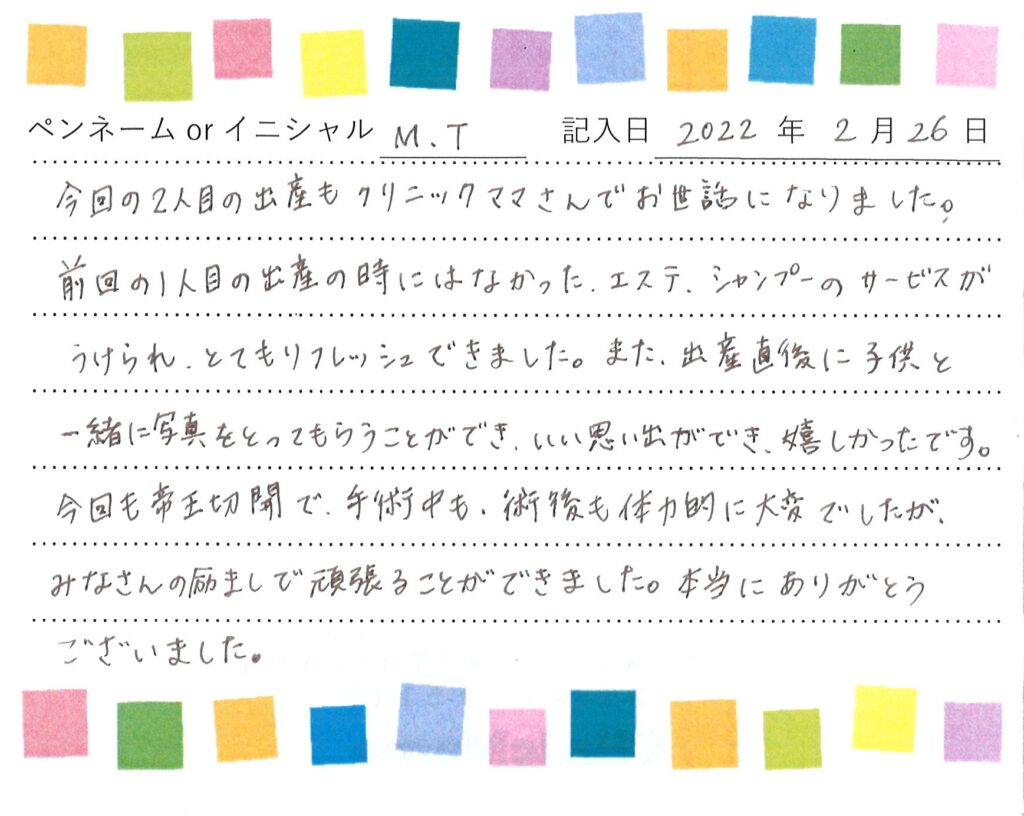 ペンネーム or イニシャル M.T 記入日 2022 年 2 月 26 日
今回の2人目の出産もクリニックママさんでお世話になりました。
前回の1人目の出産の時にはなかった、エステ、シャンプーのサービスが
うけられ、とてもリフレッシュできました。また、出産直後に子供と
一緒に写真をとってもらうことができ、いい思い出ができ、嬉しかったです。
今回も帝王切開で、手術中も、術後も体力的に大変でしたが、
みなさんの励ましで頑張ることができました。本当にありがとう
ございました。